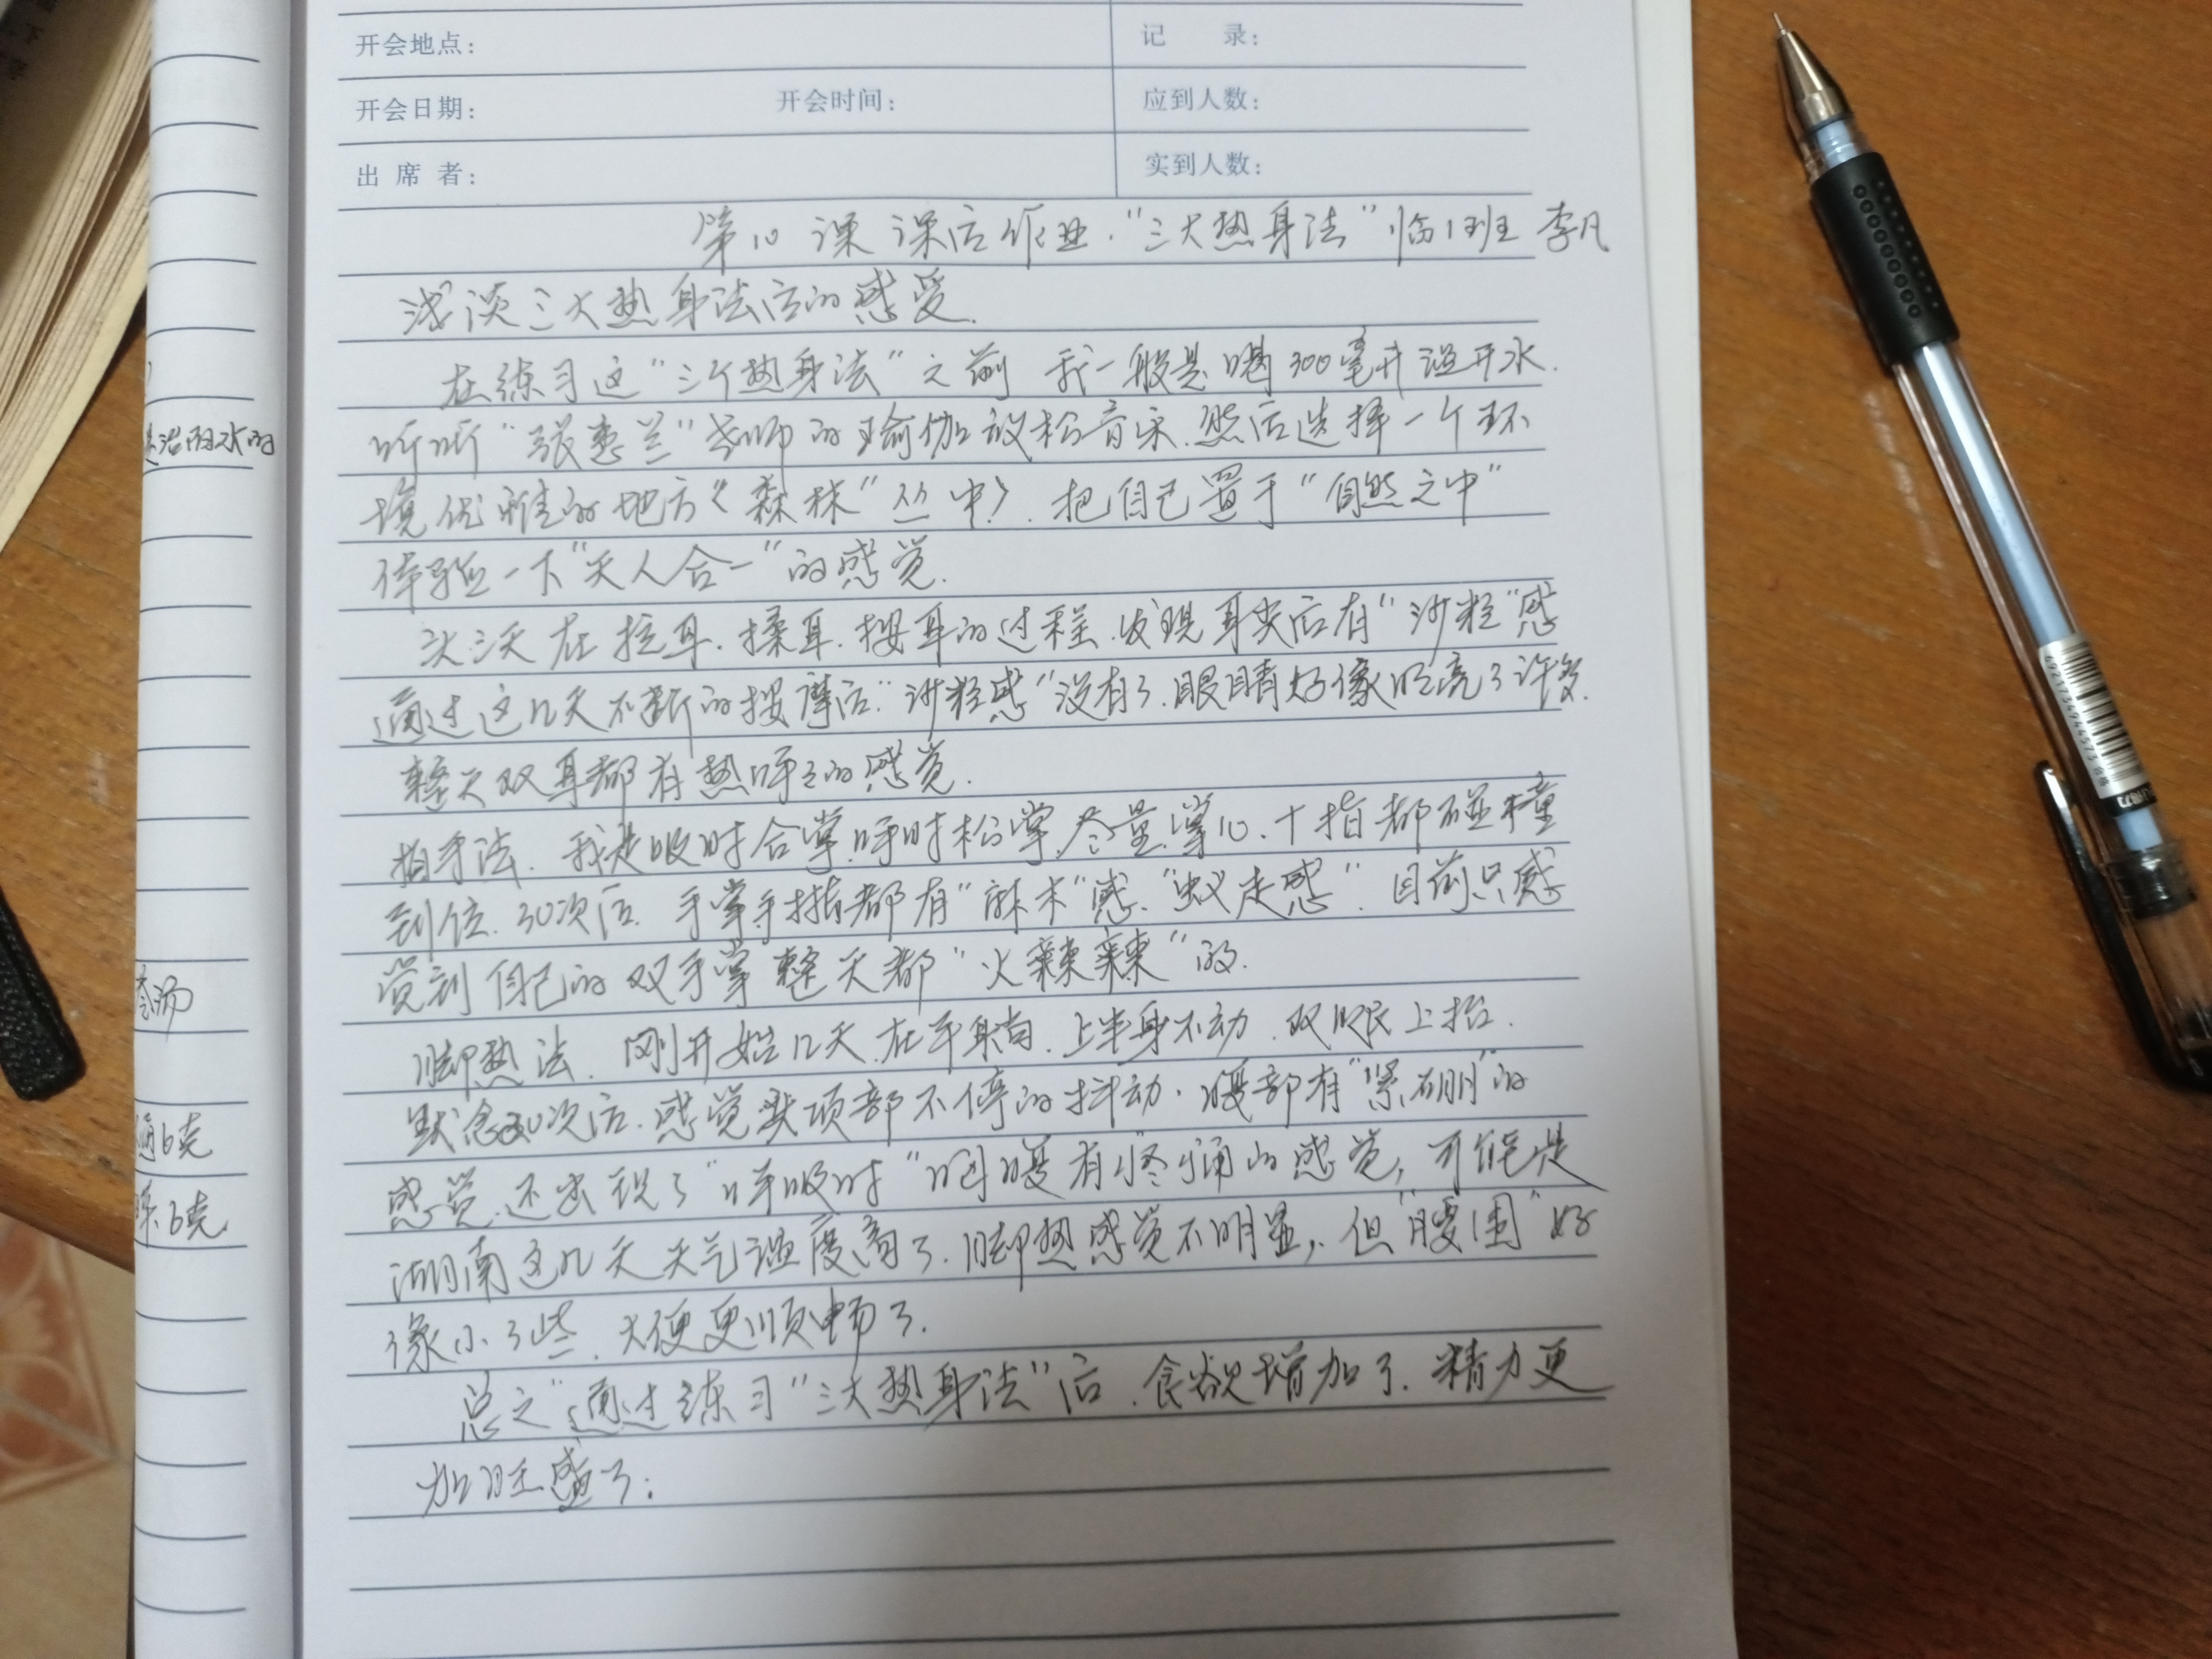 开会地点：
记 录：
开会日期：
开会时间：
应到人数：
出 席 者：
实到人数：
第10课 课后作业."三大热身法"临1班 李凡
浅谈三大热身法后的感受.
在练习这"三个热身法"之前 我一般是喝300毫升温开水.
听听"张惠兰"老师的瑜伽放松音乐.然后选择一个环
境优雅的地方《森林"丛中》.把自己置于"自然之中"
体验一下"天人合一"的感觉.
头三天在拉耳.揉耳.按耳的过程.发现耳尖后有"沙粒"感
通过这几天不断的按摩后."沙粒感"没有了.眼睛好像明亮了许多.
整天双耳都有热呼之的感觉.
拍手法.我是吸时合掌.呼时松掌.尽量.掌心.十指都碰撞
到位.30次后.手掌手指都有"麻木"感."蚁走感".目前只感
觉到自己的双手掌整天都"火辣辣"的.
脚热法.刚开始几天.在平躺.上半身不动.双腿上抬.
默念30次后.感觉头项部不停的抖动.腹部有"紧绷"的
感觉.还出现了"呼吸时"胸腹有疼痛的感觉,可能是
湖南这几天天气温度高了.脚热感觉不明显,.但"腰困"好
像小了些.大便更顺畅了.
总之"通过练习"三大热身法"后.食欲增加了.精力更
加旺盛了;
治雨水的
参汤
通6克
6克
6921734944573
合格